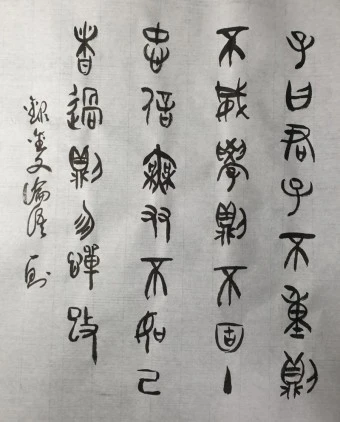 子曰君子不重則
不威學則不固主
忠信無友不如己
者過則勿憚改
錄金文論語一則